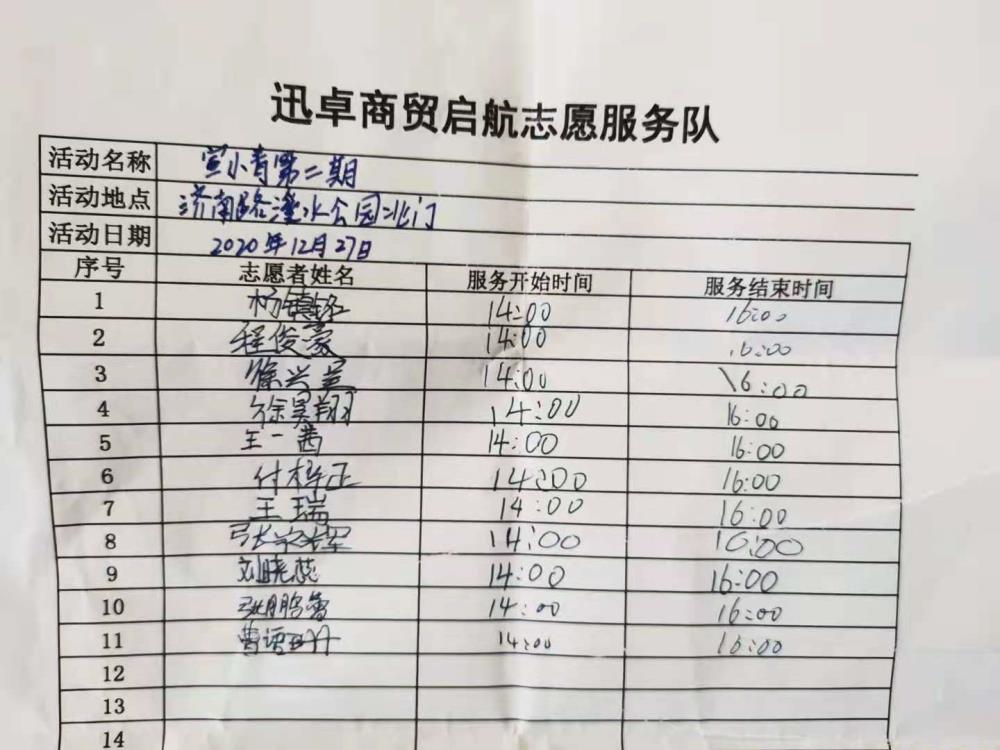 迅卓商贸启航志愿服务队
活动名称 萱小青第二期
活动地点 济南路潼水公园北门
活动日期 2020年12月27日
序号 志愿者姓名 服务开始时间 服务结束时间
1 14:00 16:00
2 程俊豪 14:00 16:00
3 14:00 16:00
4 徐昊翔 14:00 16:00
5 王一茜 14:00 16:00
6 付梓正 14:00 16:00
7 王瑞 14:00 16:00
8 14:00 16:00
9 刘晓蕊 14:00 16:00
10 张鹏鲁 14:00 16:00
11 14:00 16:00
12
13
14